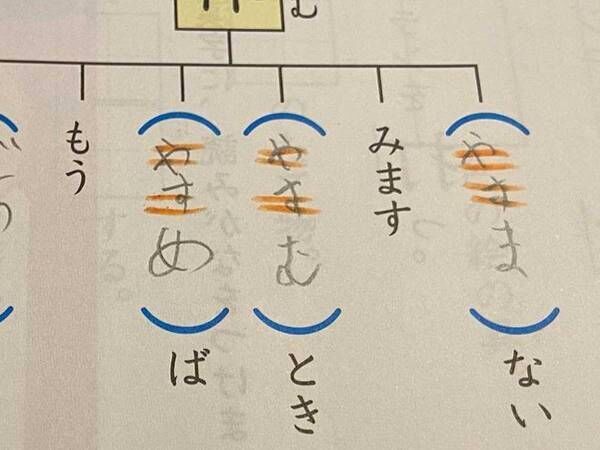 む
(やすま)ない
みます
(やすむ)とき
(やすめ)ば
もう